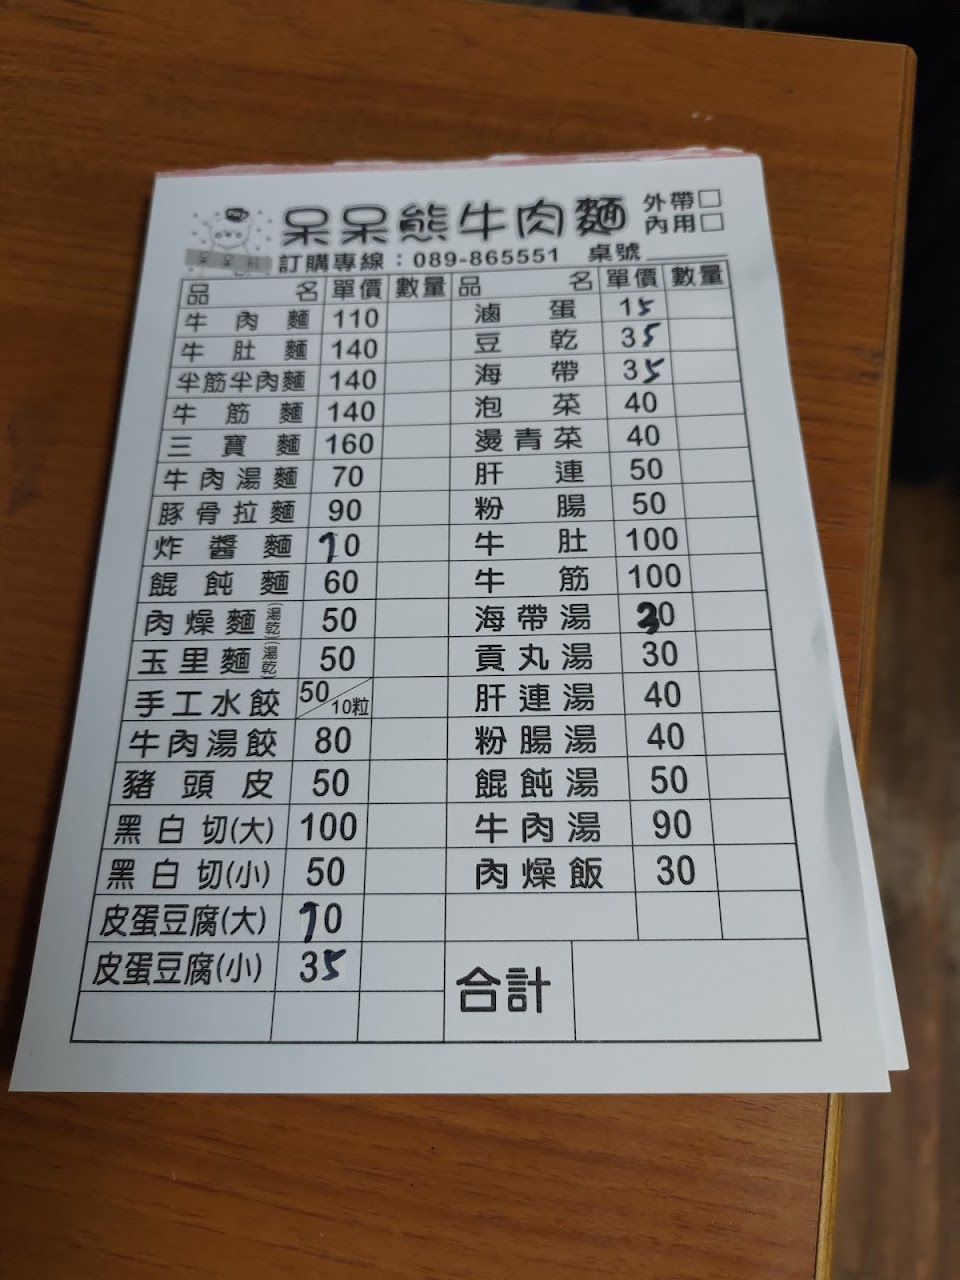 呆呆熊牛肉麵
外帶□
內用□
訂購專線：089-865551 桌號
品名 單價 數量 品名 單價 數量
牛肉麵 110 滷蛋 15
牛肚麵 140 豆乾 35
半筋半肉麵 140 海帶 35
牛筋麵 140 泡菜 40
三寶麵 160 燙青菜 40
牛肉湯麵 70 肝連 50
豚骨拉麵 90 粉腸 50
炸醬麵 70 牛肚 100
餛飩麵 60 牛筋 100
肉燥麵(湯乾) 50 海帶湯 30
玉里麵(湯乾) 50 貢丸湯 30
手工水餃 50/10粒 肝連湯 40
牛肉湯餃 80 粉腸湯 40
豬頭皮 50 餛飩湯 50
黑白切(大) 100 牛肉湯 90
黑白切(小) 50 肉燥飯 30
皮蛋豆腐(大) 70
皮蛋豆腐(小) 35
合計